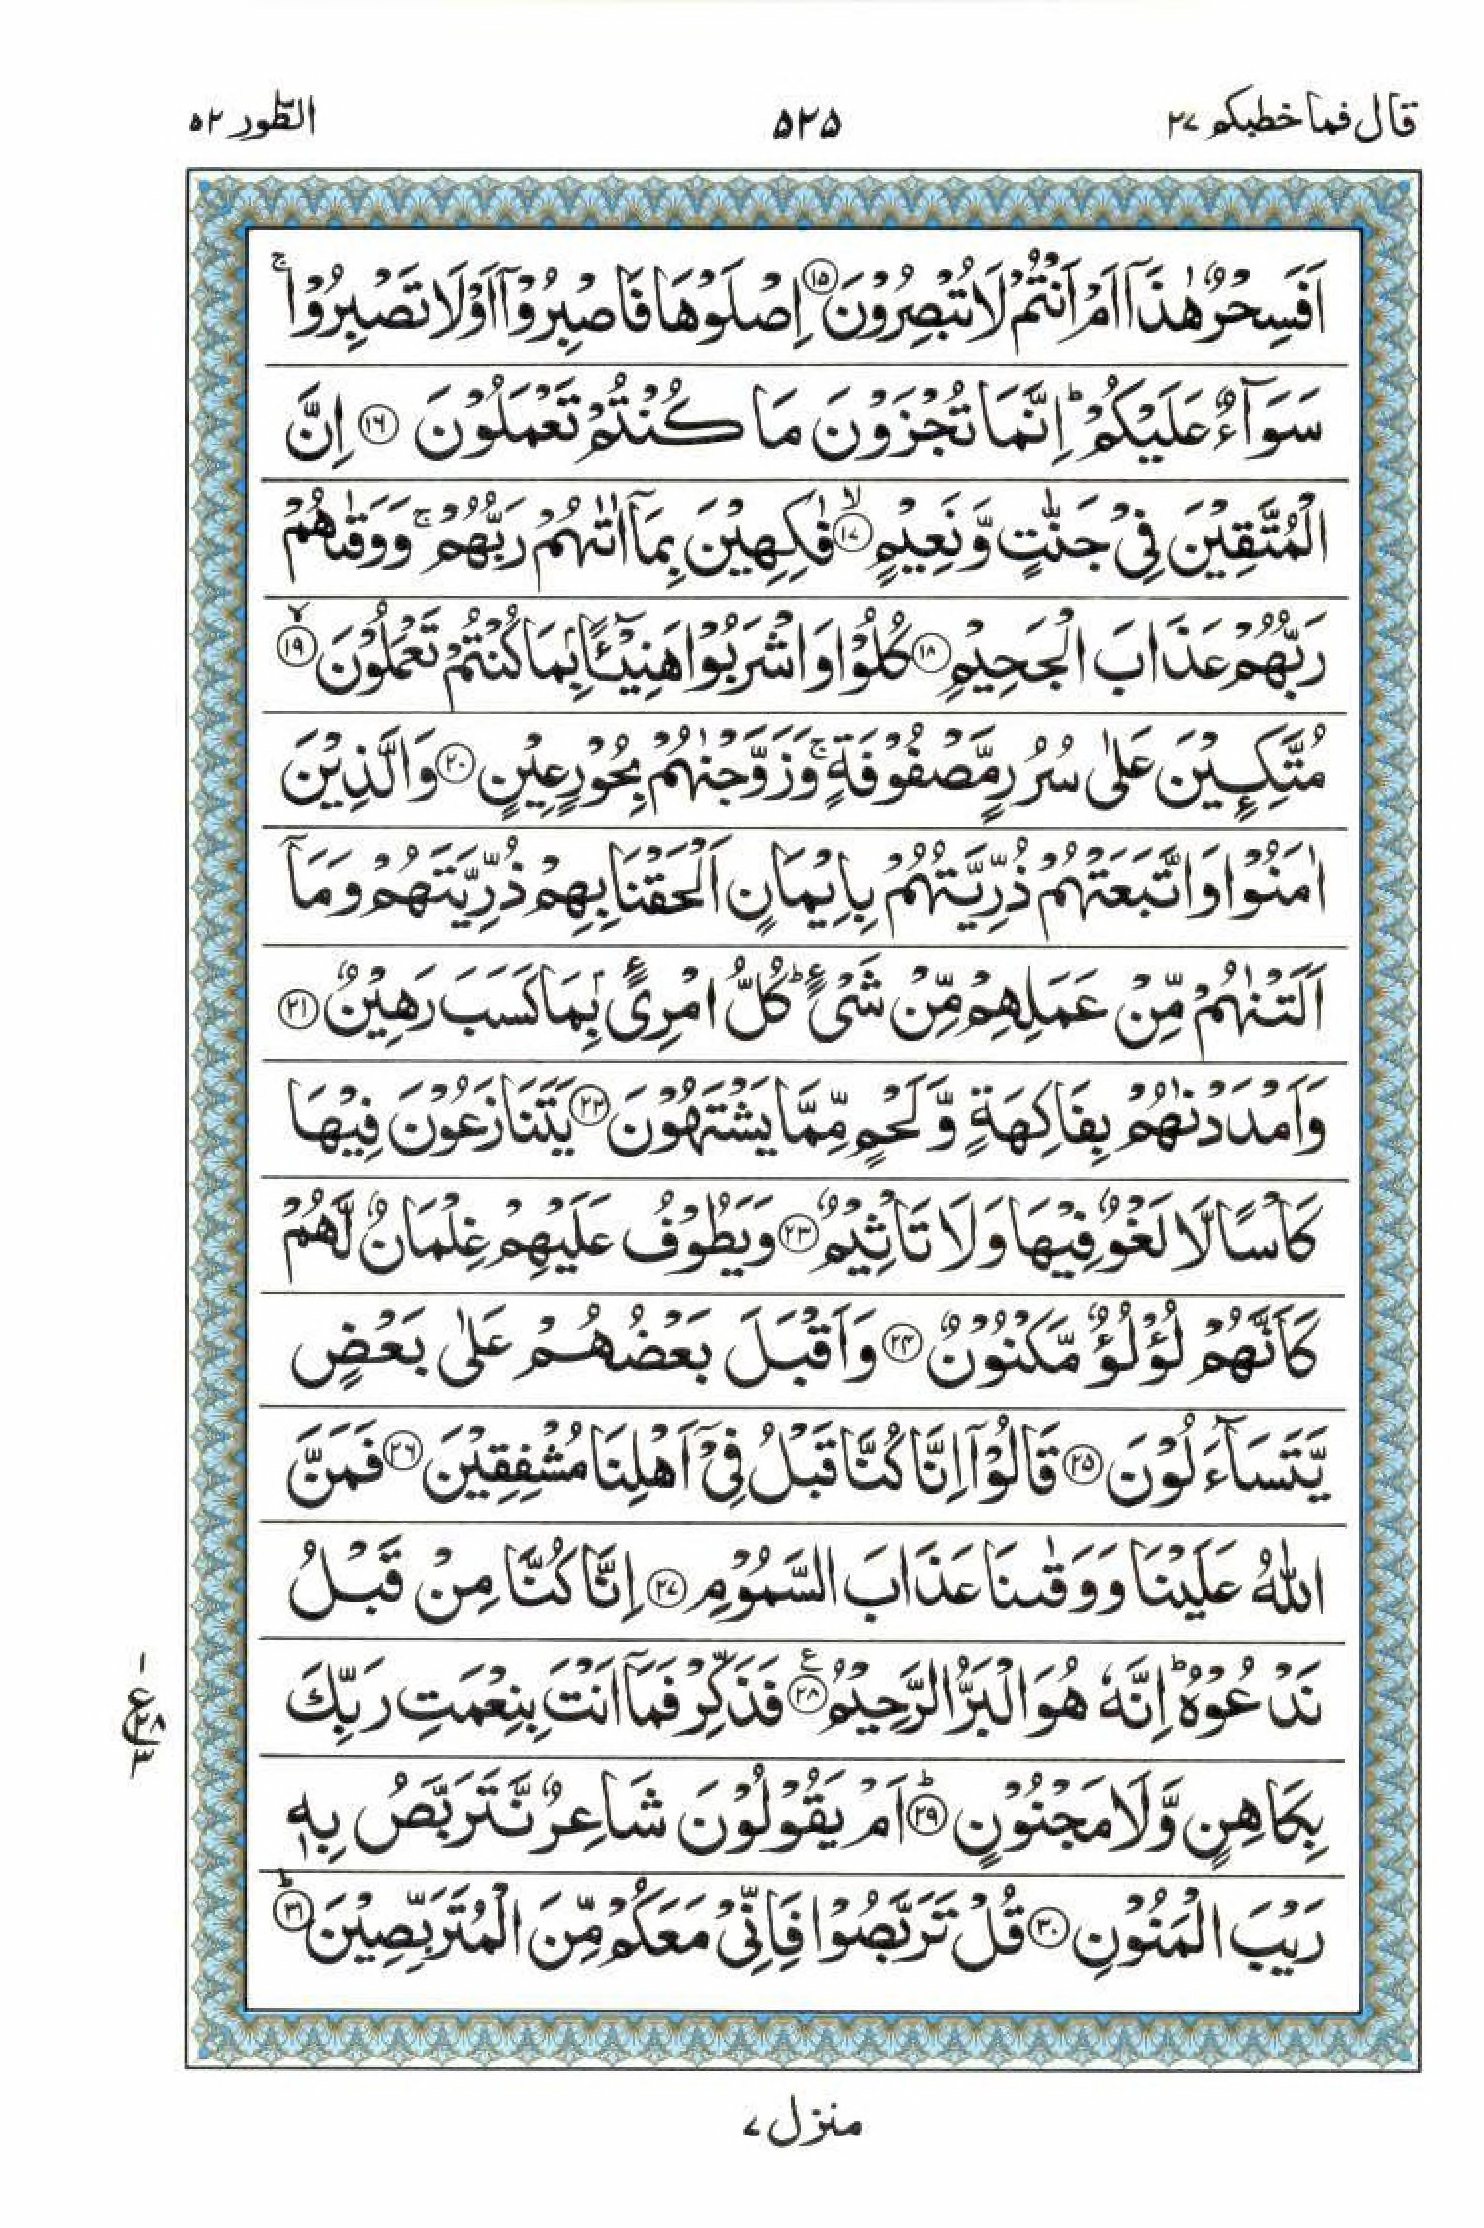 قال فما خطبكم ٢٧
٥٢٥
الطور ٥٢
اَفَسِحْرٌ هٰذَآ اَمْ اَنْتُمْ لَا تُبْصِرُوْنَ ۝١٥ اِصْلَوْهَا فَاصْبِرُوْٓا اَوْ لَا تَصْبِرُوْا ۚ
سَوَآءٌ عَلَيْكُمْ ؕ اِنَّمَا تُجْزَوْنَ مَا كُنْتُمْ تَعْمَلُوْنَ ۝١٦ اِنَّ
الْمُتَّقِيْنَ فِيْ جَنّٰتٍ وَّ نَعِيْمٍ ۙ۝١٧ فٰكِهِيْنَ بِمَآ اٰتٰىهُمْ رَبُّهُمْ ۚ وَ وَقٰىهُمْ
رَبُّهُمْ عَذَابَ الْجَحِيْمِ ۝١٨ كُلُوْا وَ اشْرَبُوْا هَنِيْٓـًٔۢا بِمَا كُنْتُمْ تَعْمَلُوْنَ ۙ۝١٩
مُتَّكِـِٕيْنَ عَلٰى سُرُرٍ مَّصْفُوْفَةٍ ۚ وَ زَوَّجْنٰهُمْ بِحُوْرٍ عِيْنٍ ۝٢٠ وَ الَّذِيْنَ
اٰمَنُوْا وَ اتَّبَعَتْهُمْ ذُرِّيَّتُهُمْ بِاِيْمَانٍ اَلْحَقْنَا بِهِمْ ذُرِّيَّتَهُمْ وَ مَآ
اَلَتْنٰهُمْ مِّنْ عَمَلِهِمْ مِّنْ شَيْءٍ ؕ كُلُّ امْرِئٍۢ بِمَا كَسَبَ رَهِيْنٌ ۝٢١
وَ اَمْدَدْنٰهُمْ بِفَاكِهَةٍ وَّ لَحْمٍ مِّمَّا يَشْتَهُوْنَ ۝٢٢ يَتَنَازَعُوْنَ فِيْهَا
كَاْسًا لَّا لَغْوٌ فِيْهَا وَ لَا تَاْثِيْمٌ ۝٢٣ وَ يَطُوْفُ عَلَيْهِمْ غِلْمَانٌ لَّهُمْ
كَاَنَّهُمْ لُؤْلُؤٌ مَّكْنُوْنٌ ۝٢٤ وَ اَقْبَلَ بَعْضُهُمْ عَلٰى بَعْضٍ
يَّتَسَآءَلُوْنَ ۝٢٥ قَالُوْٓا اِنَّا كُنَّا قَبْلُ فِيْٓ اَهْلِنَا مُشْفِقِيْنَ ۝٢٦ فَمَنَّ
اللّٰهُ عَلَيْنَا وَ وَقٰىنَا عَذَابَ السَّمُوْمِ ۝٢٧ اِنَّا كُنَّا مِنْ قَبْلُ
نَدْعُوْهُ ؕ اِنَّهٗ هُوَ الْبَرُّ الرَّحِيْمُ ۝٢٨ فَذَكِّرْ فَمَآ اَنْتَ بِنِعْمَتِ رَبِّكَ
بِكَاهِنٍ وَّ لَا مَجْنُوْنٍ ؕ۝٢٩ اَمْ يَقُوْلُوْنَ شَاعِرٌ نَّتَرَبَّصُ بِهٖ
رَيْبَ الْمَنُوْنِ ۝٣٠ قُلْ تَرَبَّصُوْا فَاِنِّيْ مَعَكُمْ مِّنَ الْمُتَرَبِّصِيْنَ ؕ۝٣١
١
ع ٢٨
٣
منزل ٧